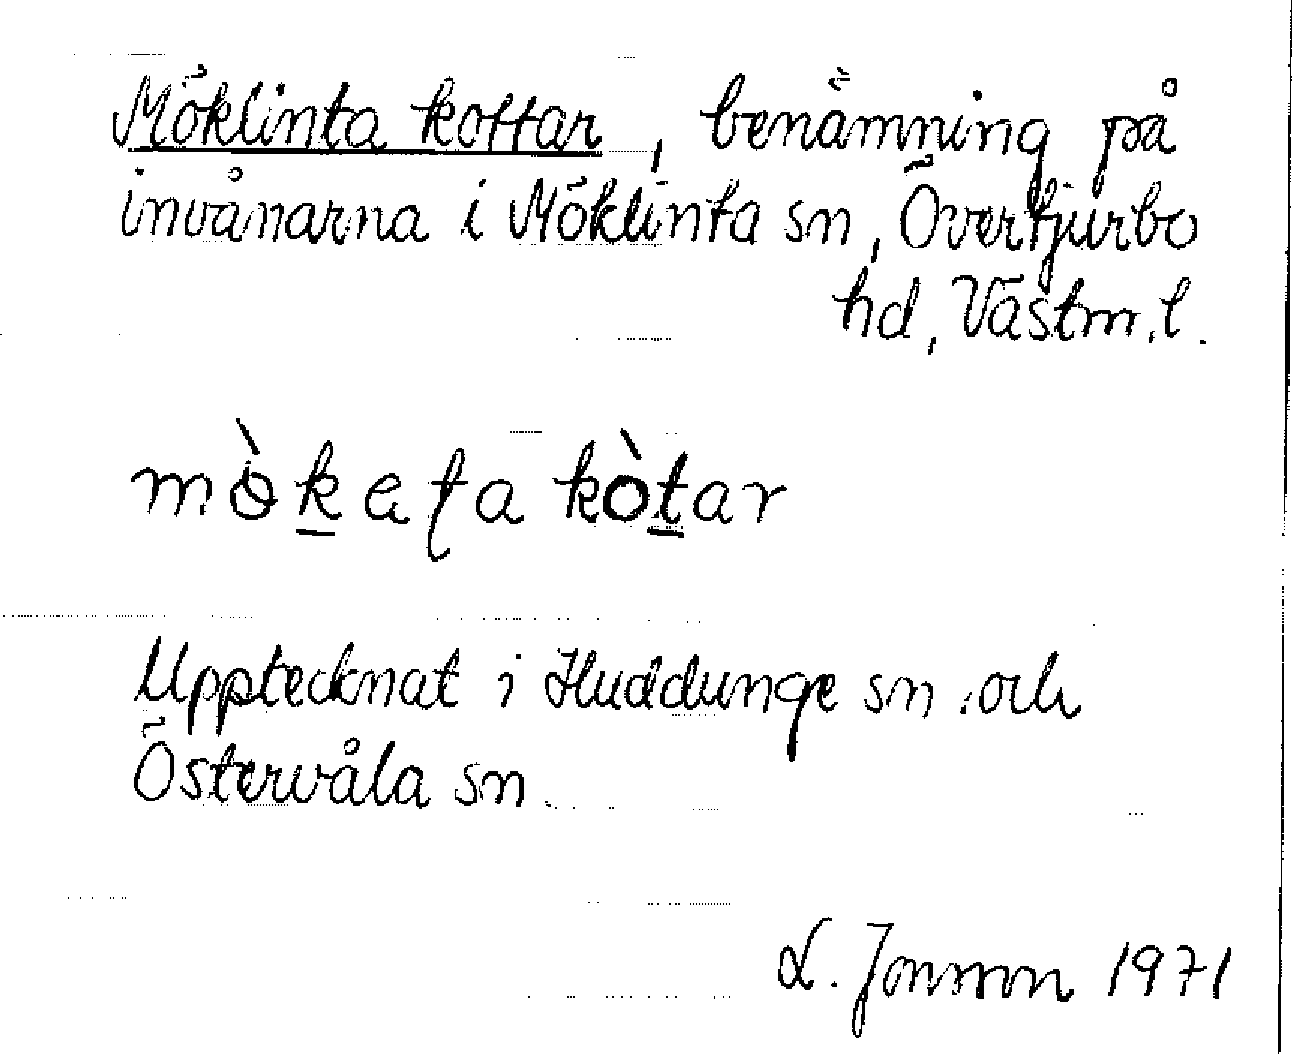 Möklinta kottar, benämning på
invånarna i Möklinta sn, Övertjurbo
hd, Västm.l.
Upptecknat i Huddunge sn och
Östervåla sn.
L. Jonsson 1971